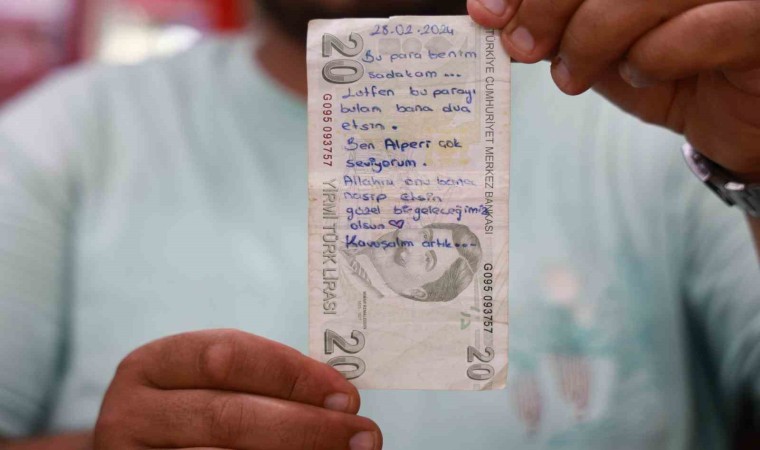 28.02.2024
Bu para benim
sadakam ...
Lütfen bu parayı
bulan bana dua
etsin.
Ben Alperi çok
seviyorum.
Allahım onu bana
nasip etsin
güzel bir geleceğimiz
olsun ♡
Kavuşalım artık ...
20
G095 093757
YİRMİ TÜRK LİRASI
20
TÜRKİYE CUMHURİYET MERKEZ BANKASI
G095 093757
20